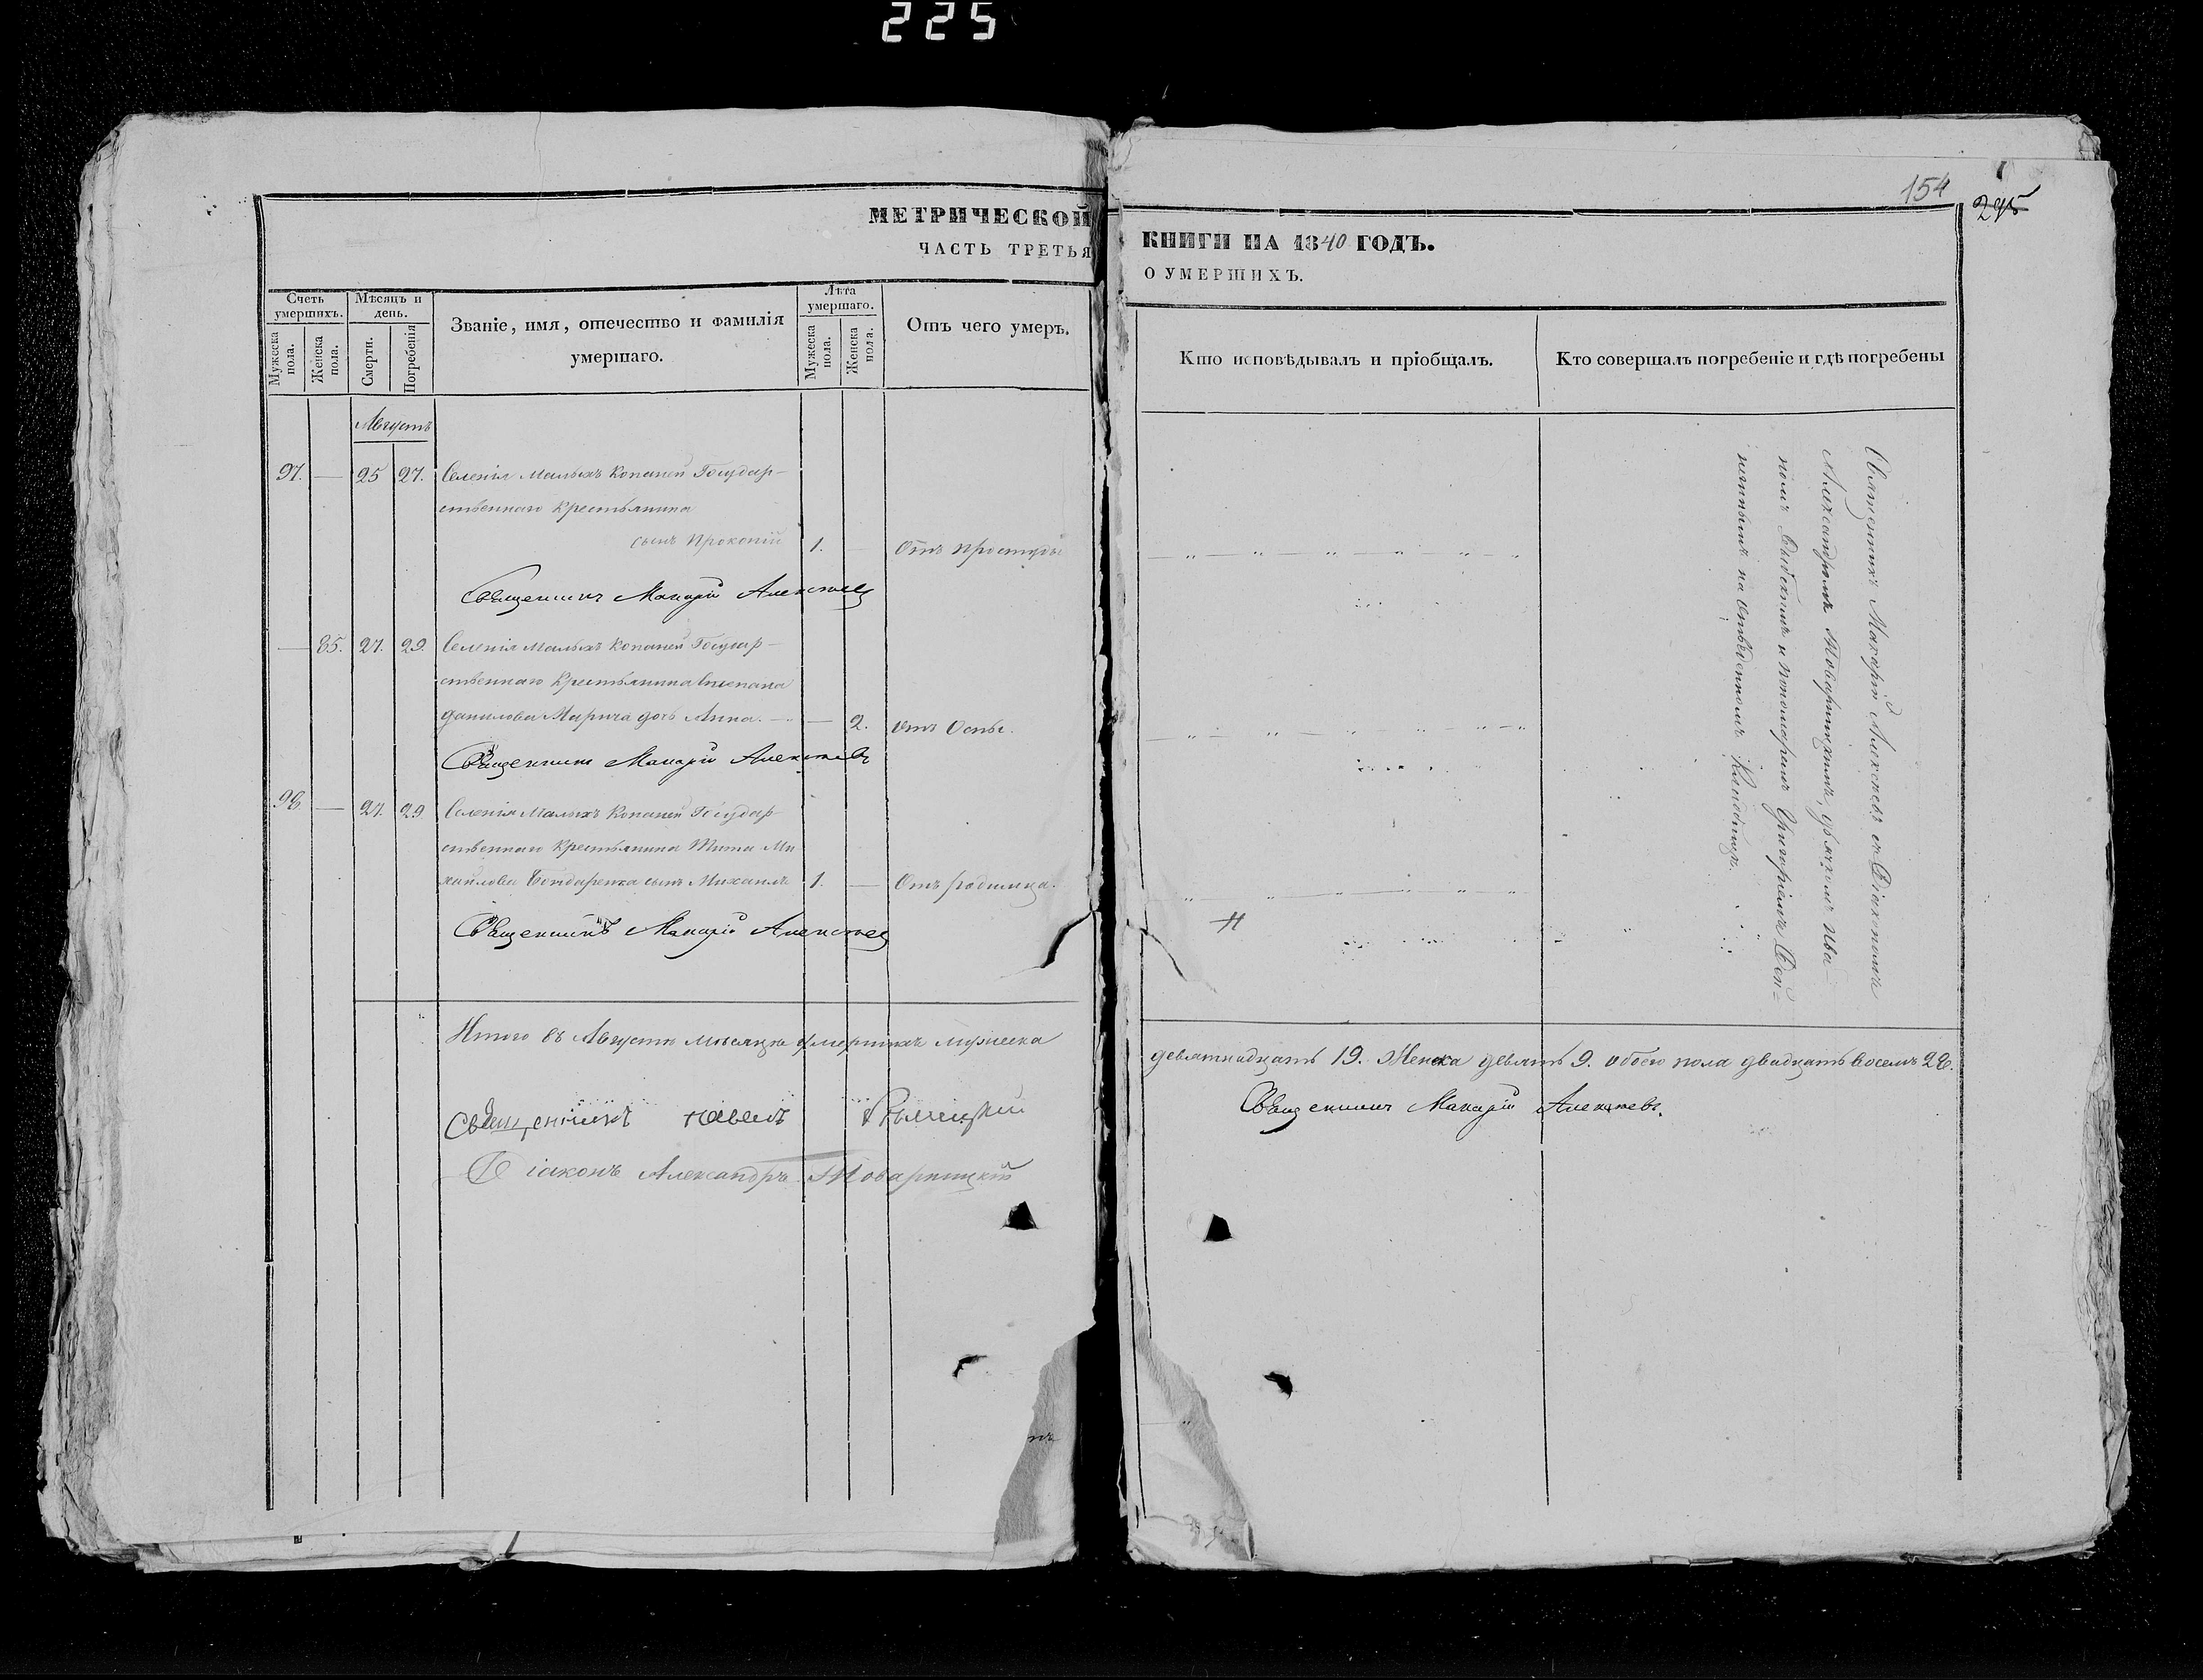 225
154
295
МЕТРИЧЕСКОЙ
ЧАСТЬ ТРЕТЬЯ
КНИГИ НА 1840 ГОДЪ.
О УМЕРШИХЪ.
Счетъ умершихъ.
Мѣсяцъ и день.
Званіе, имя, отечество и фамилія умершаго.
Лѣта умершаго.
Отъ чего умеръ.
Мужеска пола.
Женска пола.
Смерти.
Погребенія
Мужеска пола.
Женска пола.
Кто исповѣдывалъ и пріобщалъ.
Кто совершалъ погребеніе и гдѣ погребены
Августъ
97. — 25 27. Селенія Малыхъ Копаней Государ-
ственнаго Крестьянина
сынъ Прокопій 1. — Отъ простуды
Священникъ Макарій Алексѣевъ
— 85. 27. 29. Селенія Малыхъ Копаней Государ-
ственнаго Крестьянина Степана
Данилова дочь Анна. — 2. Отъ Оспы.
Священникъ Макарій Алексѣевъ
98. — 27. 29 Селенія Малыхъ Копаней Государ-
ственнаго Крестьянина Тита Ми
хайлова Бондаренка сынъ Михаилъ 1. — Отъ родимца.
Священникъ Макарій Алексѣевъ
Священникъ Макарій Алексѣевъ съ Діакономъ
Александромъ Товарницкимъ, дьячкомъ Ива
номъ и пономаремъ Григоріемъ
на отведенномъ Кладбищѣ.
Итого въ Августѣ мѣсяцѣ умершихъ мужеска
девятнадцать 19. Женска девять 9. обоего пола двадцать восемь 28.
Священникъ Макарій Алексѣевъ.
Священникъ Павелъ
Діаконъ Александръ Товарницкій